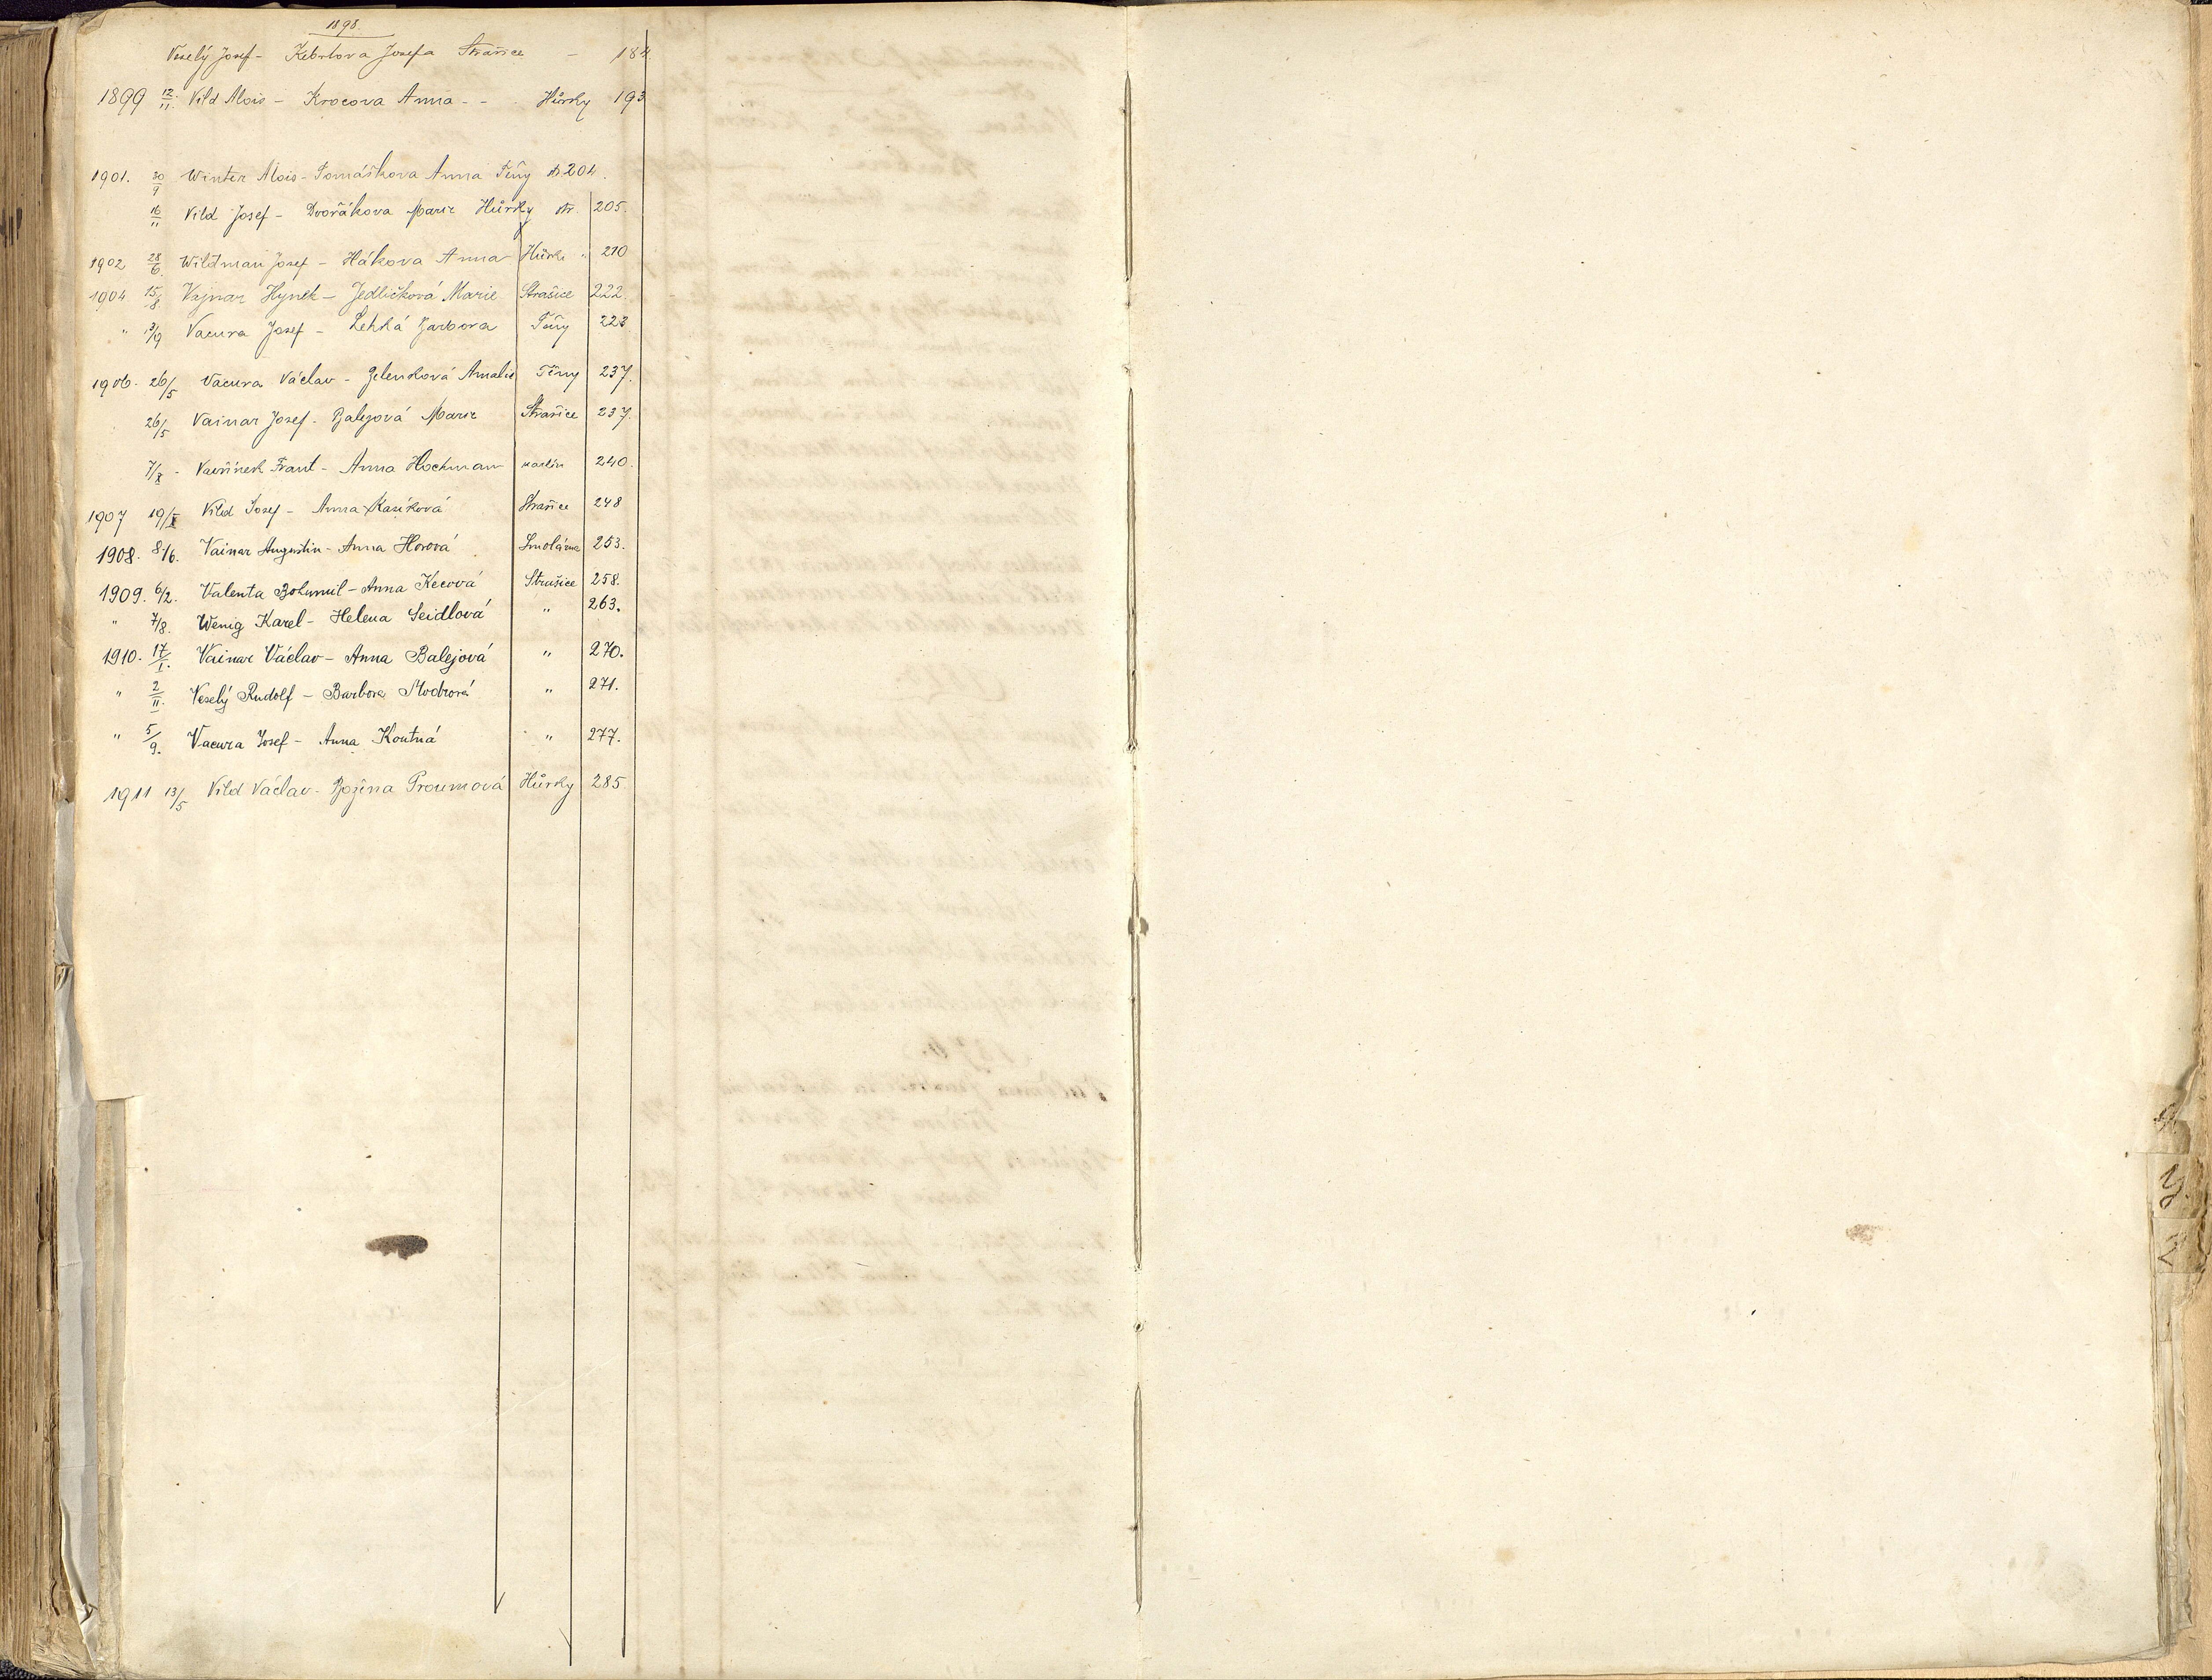 1898.
Veselý Josef - Kebrlova Josefa Strašice - 184
1899 12/11. Vild Alois - Krocova Anna - - Hůrky 193
1901. 30/9 Winter Alois - Tomáškova Anna Těny str. 204.
16/11 Vild Josef - Dvořákova Marie Hůrky str. 205.
1902 28/6. Wildman Josef - Hákova Anna Hůrki " 210
1904 15/8 Vajnar Hynek - Jedličková Marie Strašice 222.
" 13/9 Vacura Josef - Lehká Barbora Těny 223
1906. 26/5 Vacura Václav - Zelenková Amalie Těny 237.
26/5 Vainar Josef - Balejová Marie Strašice 237.
7/X - Vavřinek Frant - Anna Hochman 240.
1907 19/X Vild Josef - Anna Kasíková Strašice 248
1908. 8/6. Vainar Augustin - Anna Horová Smolárna 253.
1909. 6/2. Valenta Bohumil - Anna Kecová Strašice 258.
" 7/8. Wenig Karel - Helena Seidlová " 263.
1910. 17/I. Vainar Václav - Anna Balejová " 270.
" 2/II. Veselý Rudolf - Barbora Modrová " 271.
" 5/9. Vacura Josef - Anna Koutná " 277.
1911 13/5 Vild Václav - Božena Proumová Hůrky 285